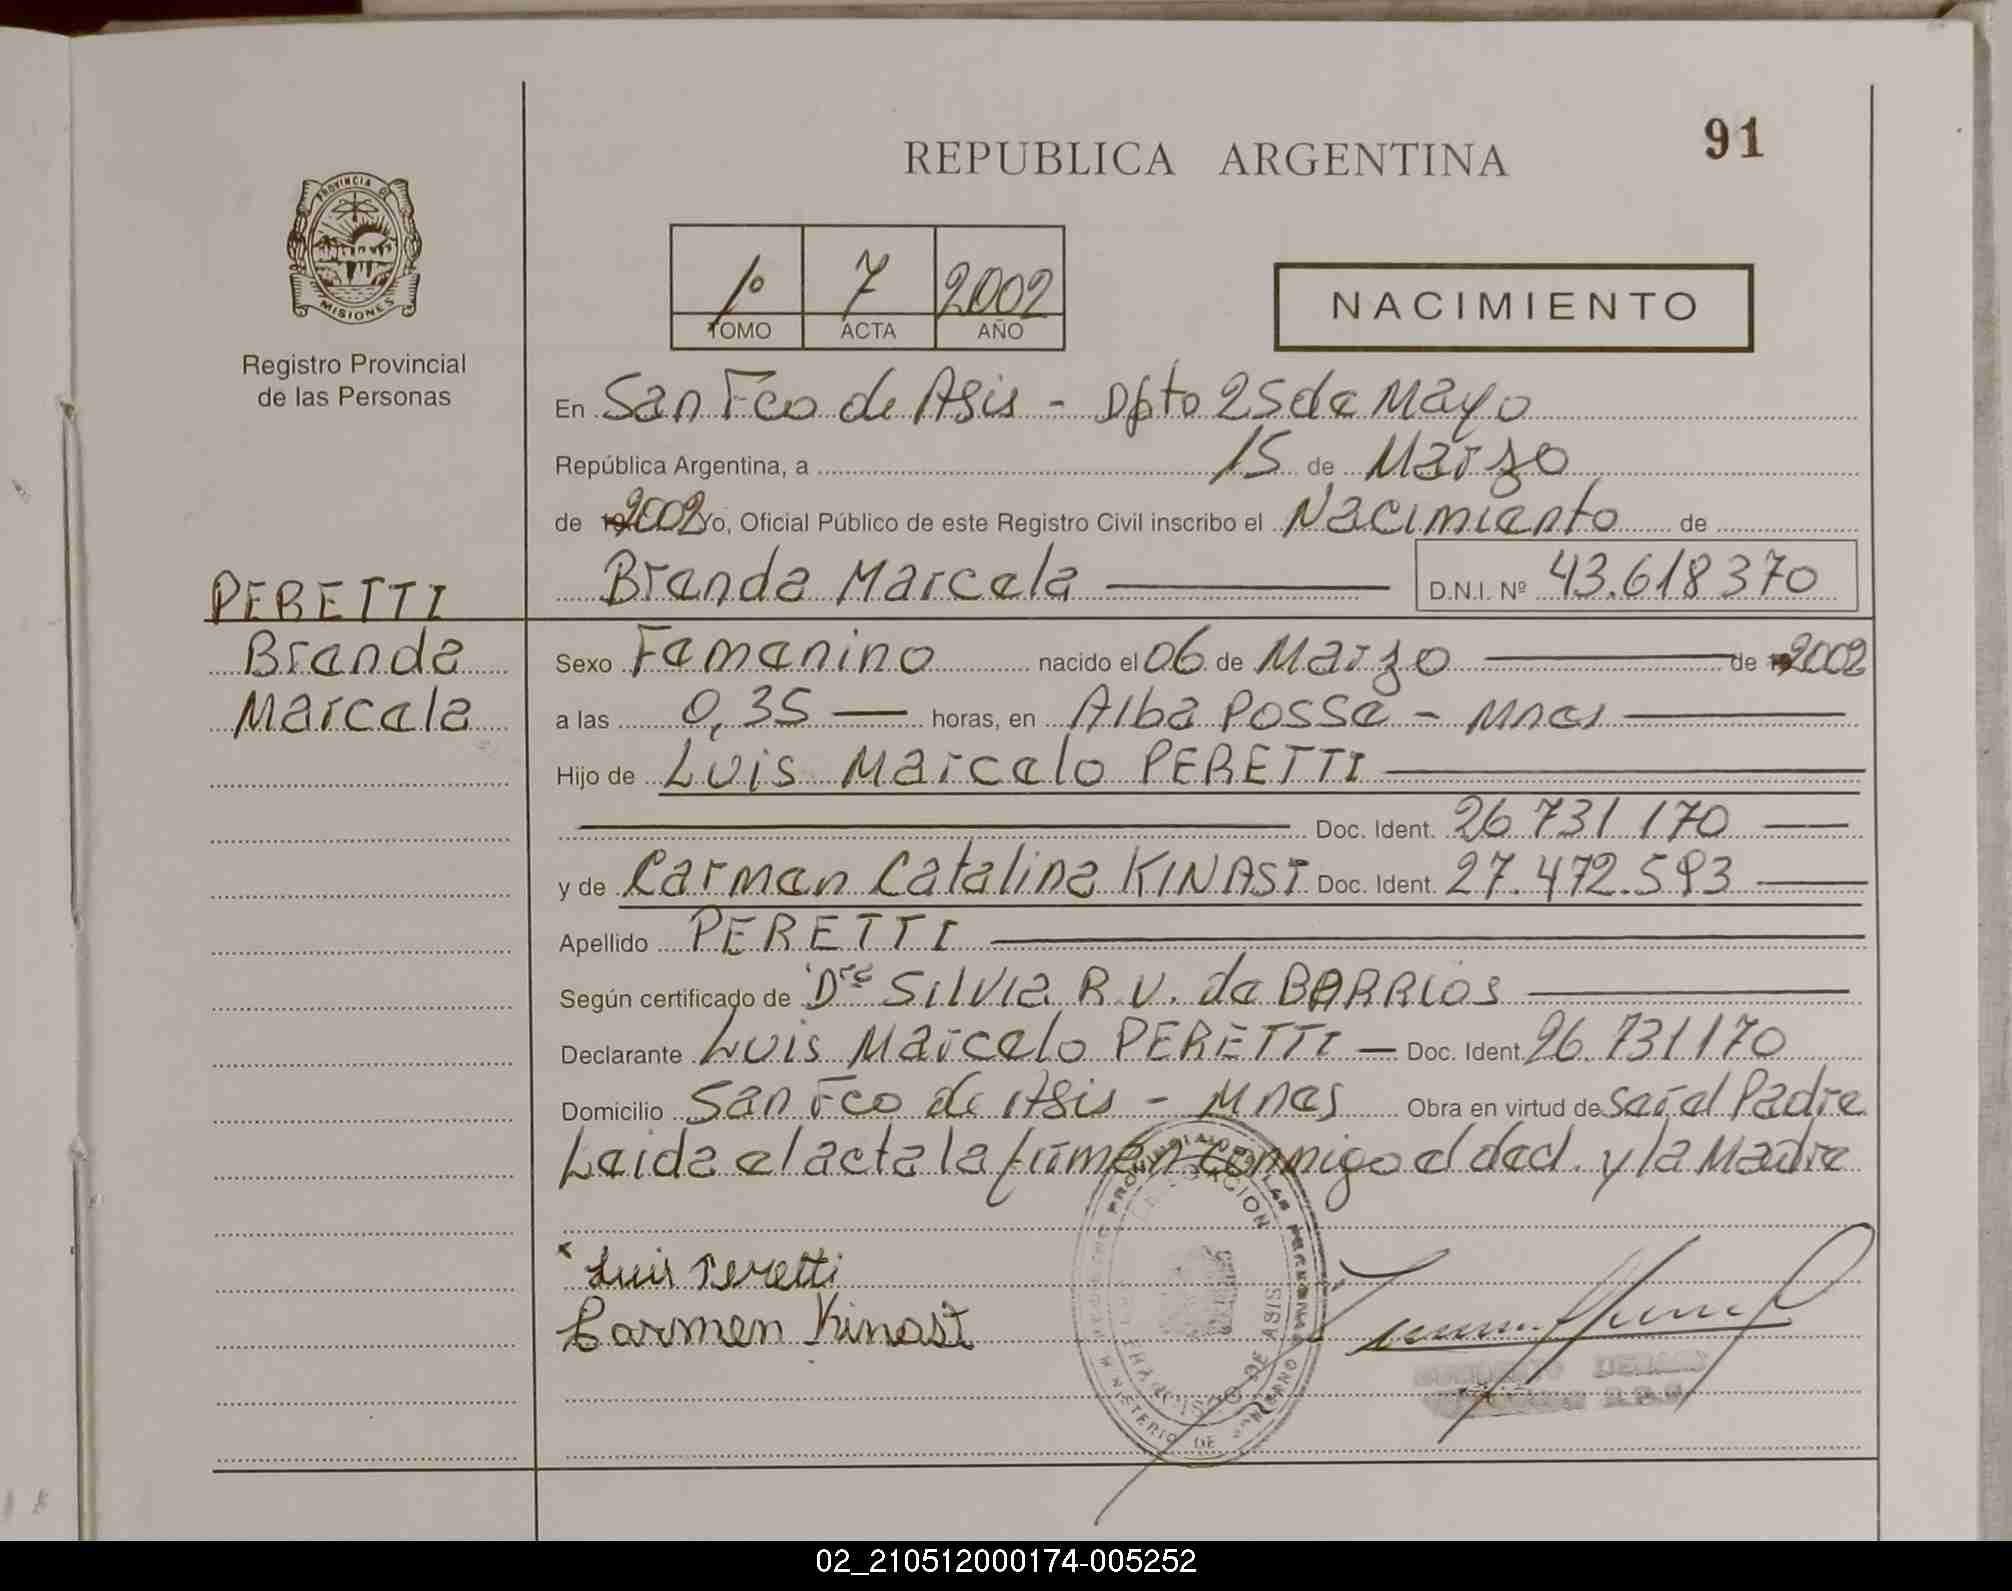 91
REPUBLICA ARGENTINA
PROVINCIA DE
MISIONES
Registro Provincial
de las Personas
1º 7 2002
TOMO ACTA AÑO
NACIMIENTO
En San Fco de Asis - Dpto 25 de Mayo
República Argentina, a 15 de Marzo
de 2002 Yo, Oficial Público de este Registro Civil inscribo el Nacimiento de
Brenda Marcela D.N.I. Nº 43.618370
PERETTI
Brenda
Marcela
Sexo Femenino nacido el 06 de Marzo de 2002
a las 0,35 horas, en Alba Posse - Mnes
Hijo de Luis Marcelo PERETTI
Doc. Ident. 26 731 170
y de Carmen Catalina KINAST Doc. Ident. 27.472.593
Apellido PERETTI
Según certificado de Dra Silvia R. V. de BARRIOS
Declarante Luis Marcelo PERETTI Doc. Ident. 26.731170
Domicilio San Fco de Asis - Mnes Obra en virtud de ser el Padre
Leida el acta la firman conmigo el decl. y la Madre
x Luis Peretti
Carmen Kinast
FRANCISCO DE ASIS
MINISTERIO DE GOBIERNO
02_210512000174-005252